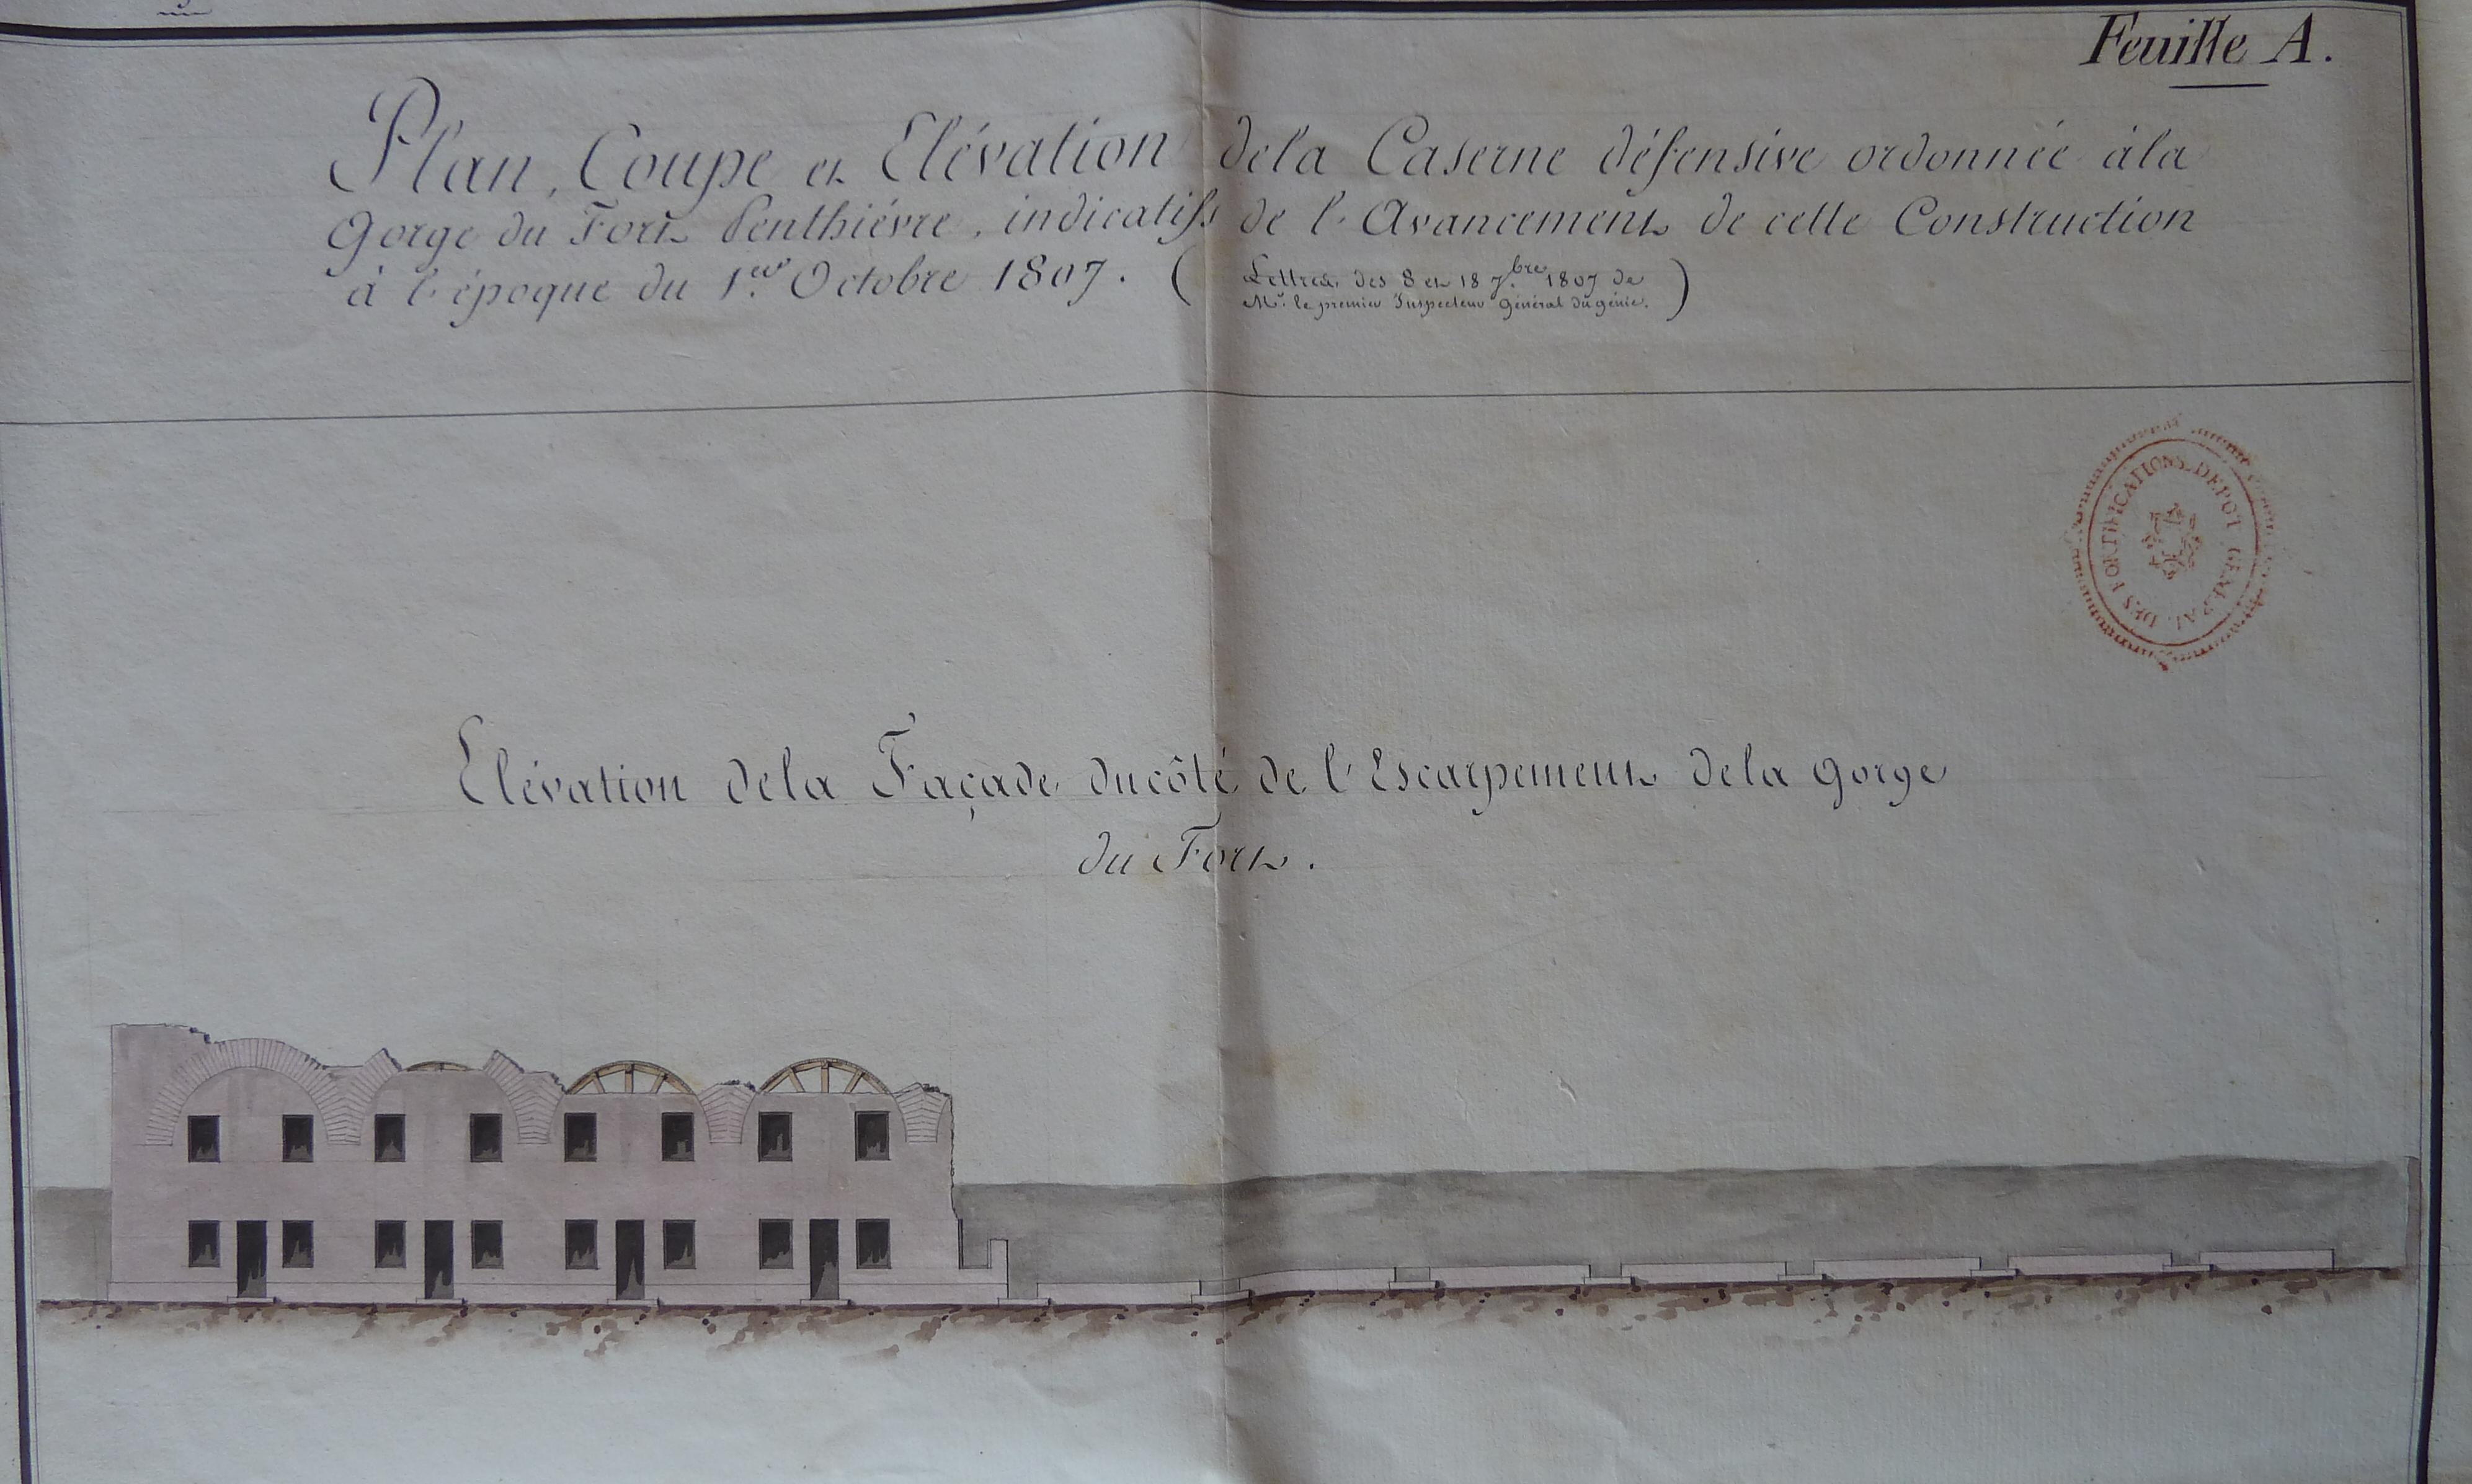 Feuille A.
Plan, Coupe et Elévation dela Caserne défensive ordonnée àla
Gorge du Fort Penthiévre, indicatifs de l'Avancement de cette Construction
à l'époque du 1.er Octobre 1807. ( Lettres des 8 et 18 7.bre 1807 de
Mr. le premier Inspecteur Général du génie. )
DEPOT GENERAL DES FORTIFICATIONS
Elévation dela Façade ducôté de l'Escarpement dela gorge
du Fort.